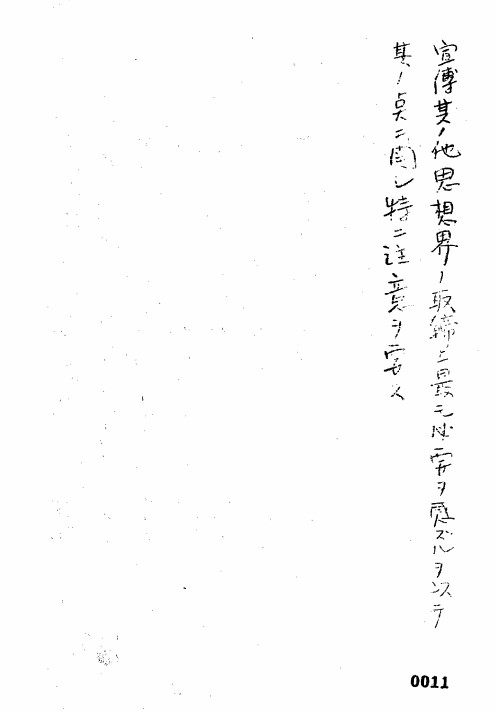 宣傳其ノ他思想界ノ取締上最モ必要ヲ感ズルヲ以テ
其ノ点ニ関シ特ニ注意ヲ要ス
0011